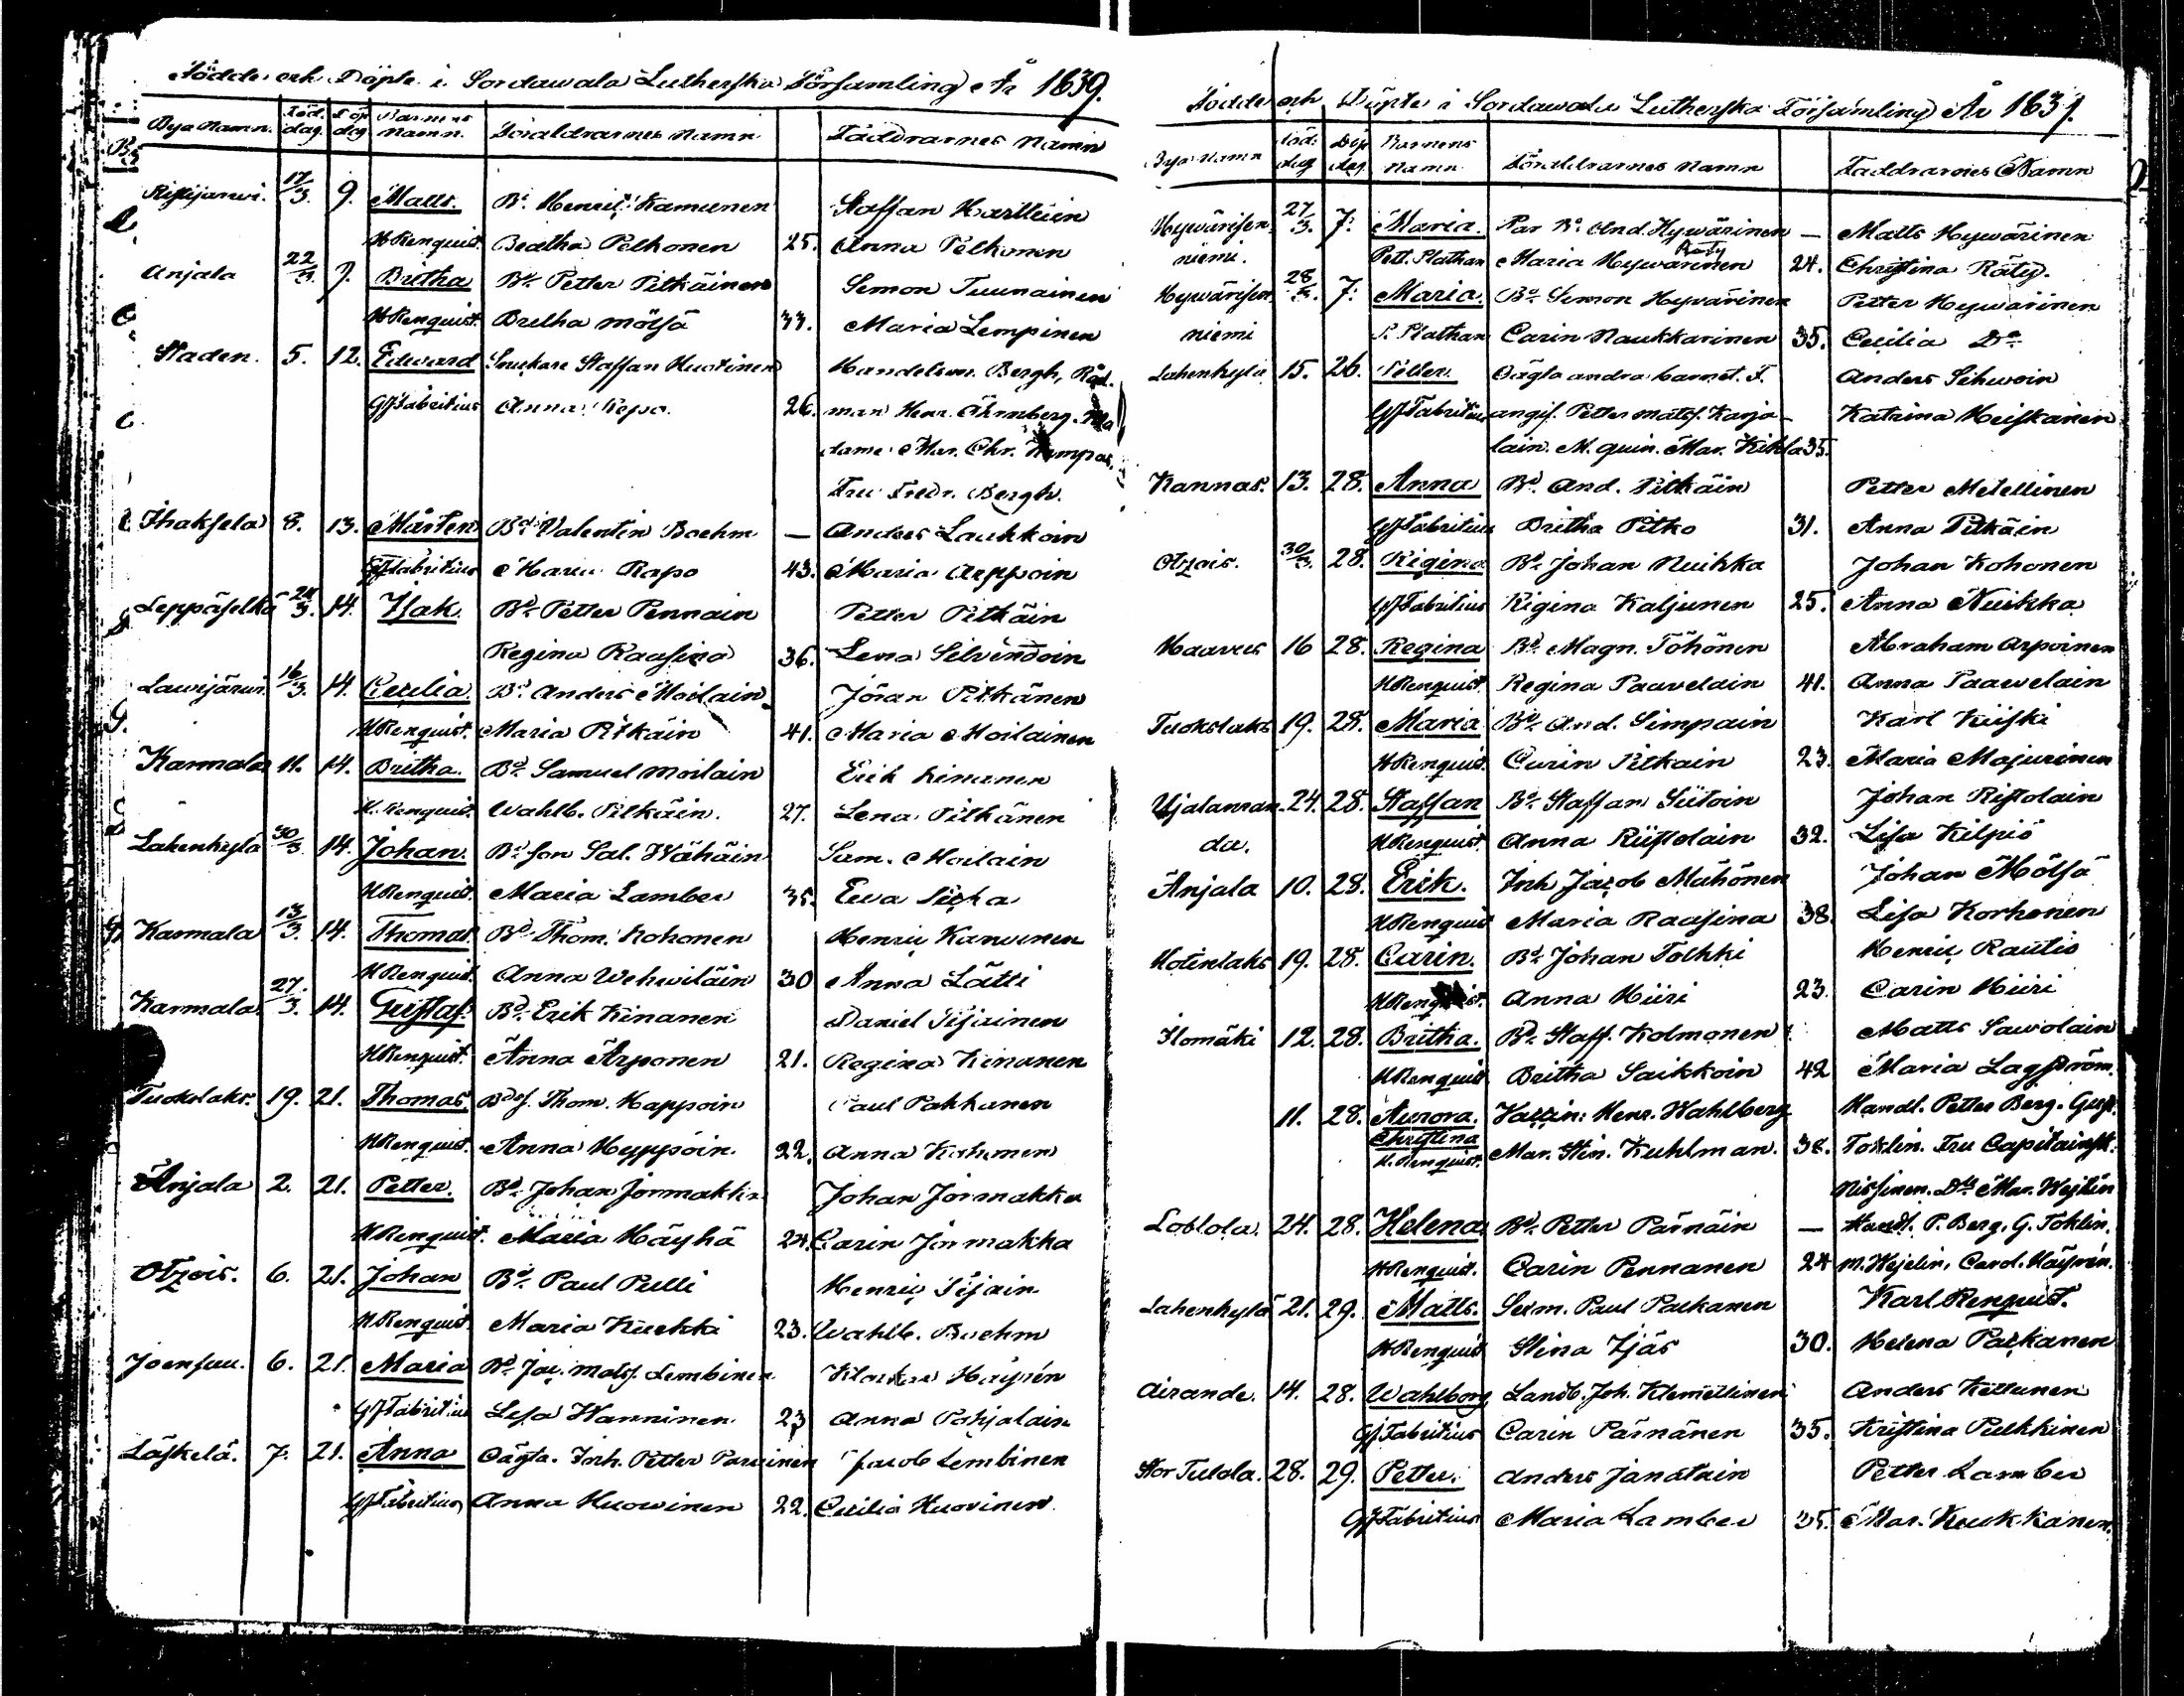 Födde och Döpte i Sordawala Lutherska Församling År 1839.
Bya Namn. Föd. dag Döp dag Barnens namn. Föräldrarnes Namn Faddrarnes Namn
Ristijärwi. 17/3. 9. Matts. Bd. Henric Kamunen Staffan Hartikin
HRenquist. Beatha Pelkonen 25. Anna Pelkonen
Anjala 22/3. 9. Britha Bd. Petter Pitkäinen Simon Tuunainen
HRenquist. Bretha Mötsä 33. Maria Lempinen
Staden. 5. 12. Edward Snickare Staffan Huotinen Handelsm. Bergh, Råd-
GJFabritius Anna Repo. 26. man Henr. Öhrnberg. Ma
dame Mar. Chr.
Fru Fredr. Bergh.
Ihaksela 8. 13. Mårten Bd. Valentin Boehm — Anders Laukkoin
GJFabritius Maria Rapo 43. Maria Arppoin
Leppäselkä 24/3. 14. Isak. Bd. Petter Pennain Petter Pitkäin
Regina Raasina 36. Lena Silvendoin
Lawijärwi. 16/3. 14. Cecilia Bd. Anders Moilain Jöran Pitkänen
HRenquist. Maria Pitkäin 41. Maria Moilainen
Karmala 11. 14. Britha. Bd. Samuel Moilain Erik Kinanen
H. Renquist. Wahlb. Pitkäin. 27. Lena Pitkänen
Lahenkylä 30/3. 14. Johan. Bd. son Sal. Wähäin Sam. Moilain
HRenquist. Maria Lamber 35. Ewa
Karmala 13/3. 14. Thomas. Bd. Thom. Kohonen Henric Karvinen
HRenquist. Anna Wehwiläin 30 Anna Lätti
Karmala 27/3. 14. Gustaf. Bd. Erik Kinanen Daniel Tijainen
HRenquist. Anna Arponen 21. Regina Kinanen
Tuokslaks. 19. 21. Thomas. Bds. Thom. Happoin Paul Pakkanen
HRenquist. Anna Heyppöin 22. Anna Kohonen
Anjala 2. 21. Petter. Bd. Johan Jormakka Johan Jormakka
HRenquist. Maria Häyhä 24. Carin Jormakka
Otzois. 6. 21. Johan Bd. Paul Pulli Henric Tijain
HRenquist. Maria Kuckki 23. Wahlb. Boehm
Joensuu. 6. 21. Maria Bd. Jac. Matss. Lembinen Häyrén
GJFabritius Lisa Hanninen 23 Anna Pohjalain
Läskelä. 7. 21. Anna Oägta. Inh. Petter Parvinen Jacob Lembinen
GJFabritius Anna Huovinen 22. Cecilia Huovinen
Födde och Döpte i Sordawala Lutherska Församling År 1839.
Bya Namn Föd: dag Döp dag Barnens Namn Föräldrarnes Namn Faddrarnes Namn
Hywärisen 27/3. 7. Maria. Par Bd. And. Hywärinen — Matts Hywärinen
niemi. Pett. Plathan Maria Hywärinen Räty 24. Christina Räty.
Hywärisen 28/3. 7. Maria. Bd. Simon Hyvärinen Petter Hywärinen
niemi P. Plathan Carin Naukkarinen 35. Cecilia Do
Lahenkylä 15. 26. Petter. Oägta andra barnet. F. Anders Sihwoin
GJFabritius angif. Petter Matss. Karja- Katrina Heiskanen
lain. M. quin. Mar. Kikla 35.
Kannas. 13. 28. Anna Bd. And. Pitkäin Petter Metellinen
GJFabritius Britha Pitko 31. Anna Pitkäin
Otzois. 30/3. 28. Rigina Bd. Johan Nuikka Johan Kohonen
GJFabritius Rigina Kaljunen 25. Anna Nuikka
Haavus 16 28. Regina Bd. Magn. Töhönen Abraham Arpoinen
HRenquist. Regina Paavelain 41. Anna Paawelain
Tuokslaks 19. 28. Maria Bd. And. Simpain Karl Kiiski
HRenquist. Carin Pitkain 23. Maria Majurinen
Ujalanran- 24. 28. Staffan Bd. Staffan Siitoin Johan Ristolain
da. HRenquist. Anna Riistolain 32. Lisa Kilpiö
Anjala 10. 28. Erik. Inh. Jacob Mähönen Johan Mötsä
HRenquist Maria Raasina 38. Lisa Korhonen
Hotinlaks 19. 28. Carin. Bd. Johan Tolkki Henric Rautio
HRenquist. Anna Hiiri 23. Carin Hiiri
Ilomäki 12. 28. Britha. Bd. Staff. Kolmonen Matts Sawolain
HRenquist Britha Saikkoin 42 Maria Lagström.
11. 28. Aurora. Henr. Wahlberg Handl. Petter Berg. Gust.
Christina
H. Renquist. Mar. Stin. Kuhlman. 38. Toklin. Fru Capitainsk.
Nissinen. Mar. Hejtin
Loblola. 24. 28. Helena Bd. Petter Pärnäin — Handl. P. Berg, G. Toklin.
HRenquist. Carin Pennanen 24 M. Hejelin, Carol. Häyrén.
Lahenkylä 21. 29. Matts. Sexm. Paul Parkanen Karl Renquist.
HRenquist Stina Tjäs 30. Helena Parkanen
Airande. 14. 28. Wahlborg Landb. Joh. Klemettinen Anders Kettunen
GJFabritius Carin Pärnänen 35. Kristina Pulkkinen
Stor Tulola. 28. 29. Petter. Anders Janatain Petter Lamber
GJFabritius Maria Lamber 35. Mar. Kuukkanen.